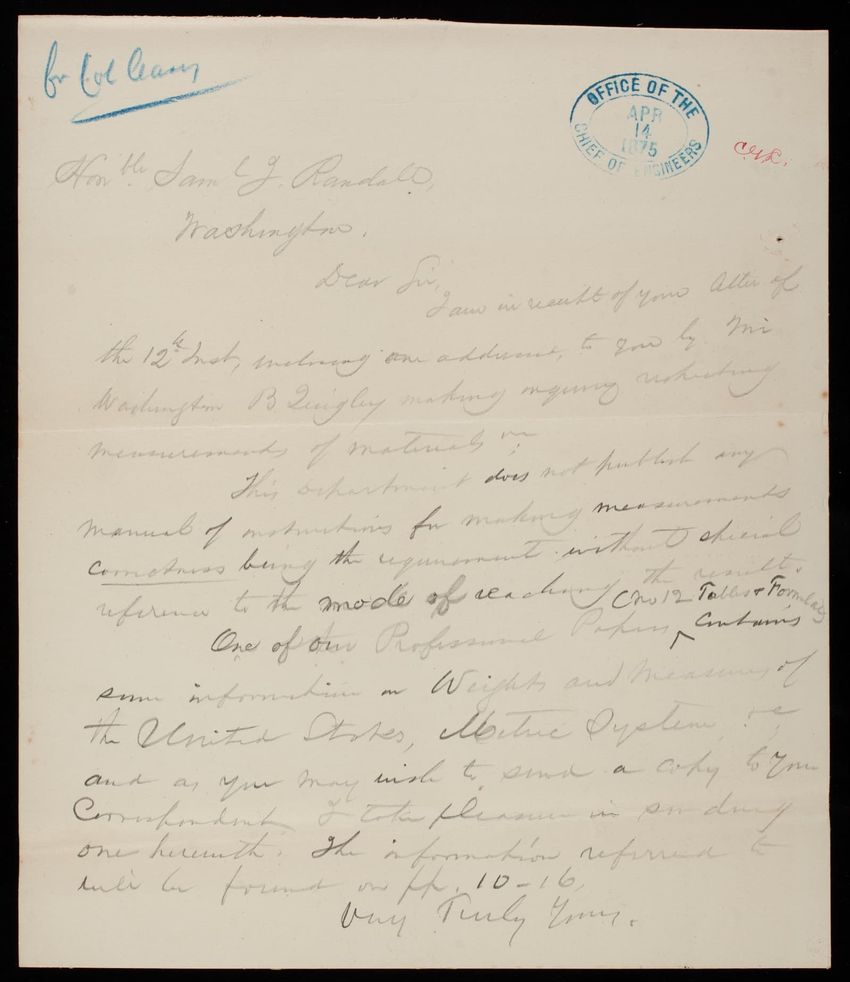 for Col Casey
OFFICE OF THE
CHIEF OF ENGINEERS
APR
14
1875
Hon'ble Sam'l J. Randall,
Washington.
Dear Sir,
I am in receipt of your letter of
the 12th Inst, inclosing one addressed, to you by Mr
Washington B Quigley making inquiry respecting
measurements of materials &c;
This Department does not publish any
manual of instructions for making measurements
correctness being the requirement without special
reference to the mode of reaching the result.
(No 12 Tables & Formulas)
One of our Professional Papers ^ Contains
some information on Weights and Measures of
the United States, Metric System, &c
and as you may wish to send a copy to your
Correspondent I take pleasure in sending
one herewith. The information referred to
will be found on pp. 10-16,
Very Truly Yours.